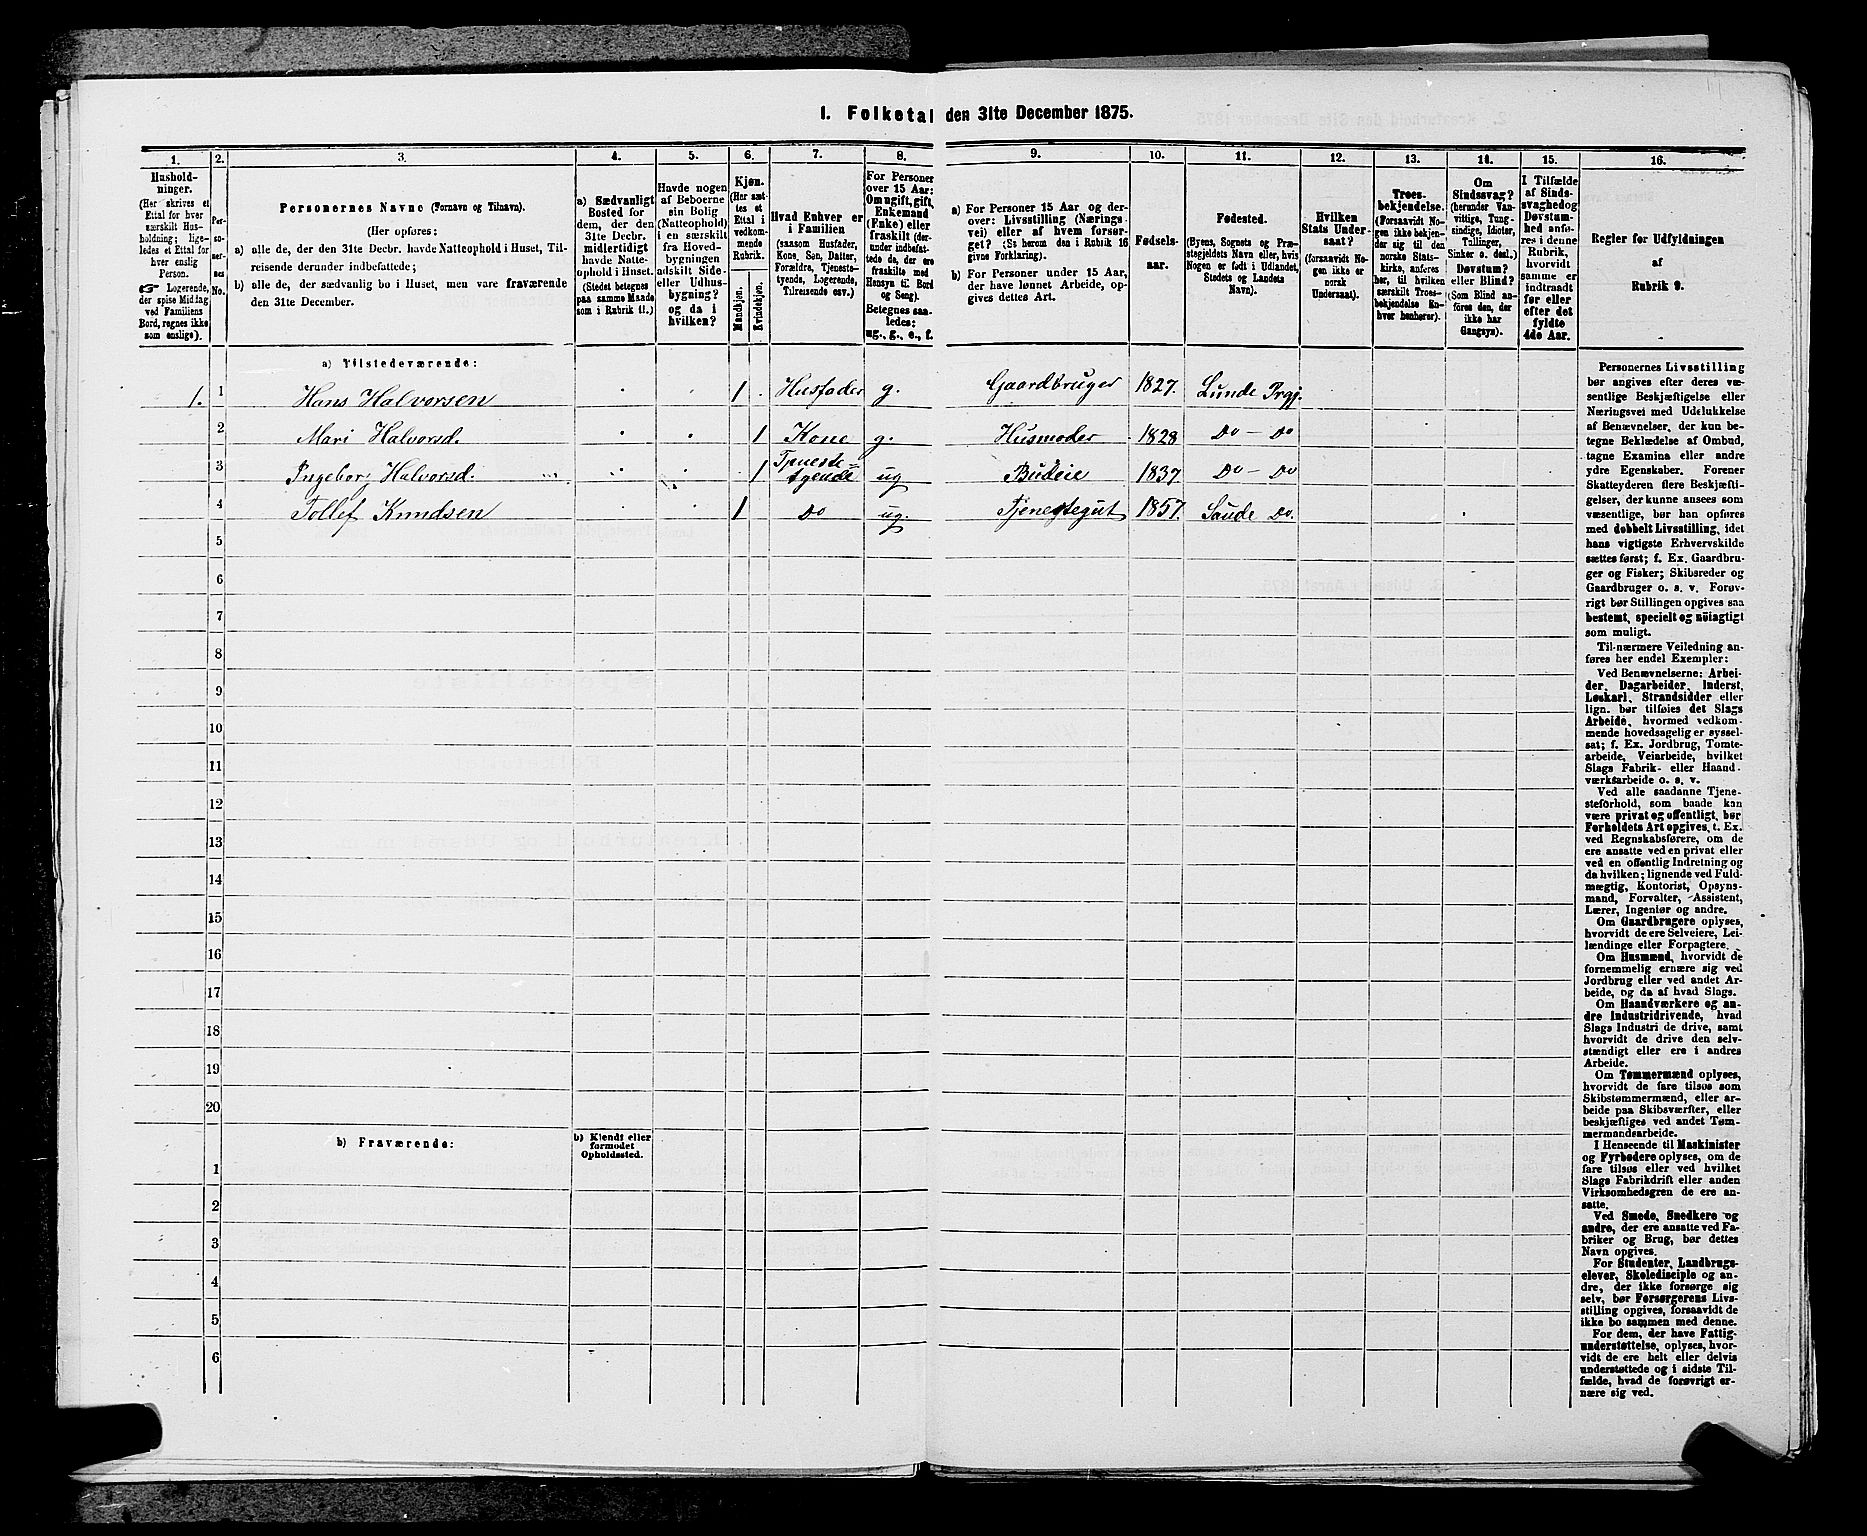 1. Folketal den 31te December 1875.
1.
Hushold-
ninger.
(Her skrives et
Ettal for hver
særskilt Hus-
holdning; lige-
ledes et Ettal for
hver enslig
Person.
☞ Logerende,
der spise Middag
ved Familiens
Bord, regnes ikke
som enslige).
2.
Per-
so-
ner-
nes
No.
3.
Personernes Navne (Fornavn og Tilnavn).
(Her opføres:
a) alle de, der den 31te Decbr. havde Natteophold i Huset, Til-
reisende derunder indbefattede;
b) alle de, der sædvanlig bo i Huset, men vare fraværende
den 31te December.
4.
a) Sædvanligt
Bosted for
dem, der den
31te Decbr.
midlertidigt
havde Natte-
ophold i Huset.
(Stedet betegnes
paa samme Maade
som i Rubrik 11.)
5.
Havde nogen
af Beboerne
sin Bolig
(Natteophold)
i en særskilt
fra Hoved-
bygningen
adskilt Side-
eller Udhus-
bygning?
og da i
hvilken?
6.
Kjøn.
(Her sæt-
tes et
Ettal i
vedkom-
mende
Rubrik.
Mandkjøn.
Kvindekjøn.
7.
Hvad Enhver er
i Familien
(saasom Husfader,
Kone, Søn, Datter,
Forældre, Tjeneste-
tyende, Logerende,
Tilreisende osv.)
8.
For Personer
over 15 Aar:
Om ugift, gift,
Enkemand
(Enke) eller
fraskilt (der-
under indbefat-
tede de, der ere
fraskilte med
Hensyn til Bord
og Seng).
Betegnes saa-
ledes:
ug., g., e., f.
9.
a) For Personer 15 Aar og der-
over: Livsstilling (Nærings-
vei) eller af hvem forsør-
get? (Se herom den i Rubrik 16
givne Forklaring).
b) For Personer under 15 Aar,
der have lønnet Arbeide, op-
gives dettes Art.
10.
Fødsels-
aar.
11.
Fødested.
(Byens, Sognets og Præ-
stegjeldets Navn eller, hvis
Nogen er født i Udlandet,
Stedets og Landets
Navn).
12.
Hvilken
Stats Under-
saat?
(forsaavidt No-
gen ikke er
norsk
Undersaat).
13.
Troes-
bekjendelse.
(Forsaavidt No-
gen ikke bekjen-
der sig til den
norske Stats-
kirke, anføres
her, til hvilken
særskilt Troes-
bekjendelse En-
hver henhører).
14.
Om
Sindssvag?
(herunder Van-
vittige, Tung-
sindige, Idioter,
Tullinger,
Sinker o. desl.)
Døvstum?
eller Blind?
(Som Blind an-
føres den, der
ikke har
Gangsyn).
15.
I Tilfælde
af Sinds-
svaghed og
Døvstum-
hed anfø-
res i denne
Rubrik,
hvorvidt
samme er
indtraadt
før eller
efter det
fyldte
4de Aar.
16.
Regler for Udfyldningen
af
Rubrik 9.
a) Tilstedeværende:
1. 1 Hans Halvorsen 1 Husfader g. Gaardbruger 1827. Lunde Prgj.
2 Mari Halvorsd. 1 Kone g. Husmoder 1828 Do - Do
3 Ingeborg Halvorsd. 1 Tjeneste-
tyende ug Budeie 1837. Do - Do
4 Tollef Knudsen 1 Do ug. Tjenestegut 1857. Saude Do.
5
6
7
8
9
10
11
12
13
14
15
16
17
18
19
20
b) Fraværende:
b) Kjendt eller
formodet
Opholdssted.
1
2
3
4
5
6
Personernes Livsstilling
bør angives efter deres væ-
sentlige Beskjæftigelse eller
Næringsvei med Udelukkelse
af Benævnelser, der kun be-
tegne Beklædelse af Ombud,
tagne Examina eller andre
ydre Egenskaber. Forener
Skatteyderen flere Beskjæfti-
gelser, der kunne ansees som
væsentlige, bør han opføres
med dobbelt Livsstilling, idet
hans vigtigste Erhvervskilde
sættes først; f. Ex. Gaardbru-
ger og Fisker; Skibsreder og
Gaardbruger o. s. v. Forøv-
rigt bør Stillingen opgives saa
bestemt, specielt og nøiagtigt
som muligt.
Til nærmere Veiledning an-
føres her endel Exempler:
Ved Benævnelserne: Arbei-
der, Dagarbeider, Inderst,
Løskarl, Strandsidder eller
lign. bør tilføies det Slags
Arbeide, hvormed vedkom-
mende hovedsagelig er syssel-
sat; f. Ex. Jordbrug, Tomte-
arbeide, Veiarbeide, hvilket
Slags Fabrik- eller Haand-
værksarbeide o. s. v.
Ved alle saadanne Tjene-
steforhold, som baade kan
være privat og offentligt, bør
Forholdets Art opgives, t. Ex.
ved Regnskabsførere, om de
ere ansatte ved en privat eller
ved en offentlig Indretning og
da hvilken; lignende ved Fuld-
mægtig, Kontorist, Opsyns-
mand, Forvalter, Assistent,
Lærer, Ingeniør og andre.
Om Gaardbrugere oplyses,
hvorvidt de ere Selveiere, Lei-
lændinge eller Forpagtere.
Om Husmænd, hvorvidt de
fornemmelig ernære sig ved
Jordbrug eller ved andet Ar-
beide, og da af hvad Slags.
Om Haandværkere og an-
dre Industridrivende, hvad
Slags Industri de drive, samt
hvorvidt de drive den selv-
stændigt eller ere i andres
Arbeide.
Om Tømmermænd oplyses,
hvorvidt de fare tilsøs som
Skibstømmermænd, eller ar-
beide paa Skibsværfter, eller
beskjæftiges ved andet Tøm-
mermandsarbeide.
I Henseende til Maskinister
og Fyrbødere oplyses, om de
fare tilsøs eller ved hvilket
Slags Fabrikdrift eller anden
Virksomhedsgren de ere an-
satte.
Ved Smede, Snedkere og
andre, der ere ansatte ved Fa-
briker og Brug, bør dettes
Navn opgives.
For Studenter, Landbrugs-
elever, Skoledisciple og an-
dre, der ikke forsørge sig
selv, bør Forsørgerens Livs-
stilling opgives, forsaavidt de
ikke bo sammen med denne.
For dem, der have Fattig-
understøttelse, oplyses, hvor-
vidt de ere helt eller delvis
understøttede og i sidste Til-
fælde, hvad de forøvrigt er-
nære sig ved.